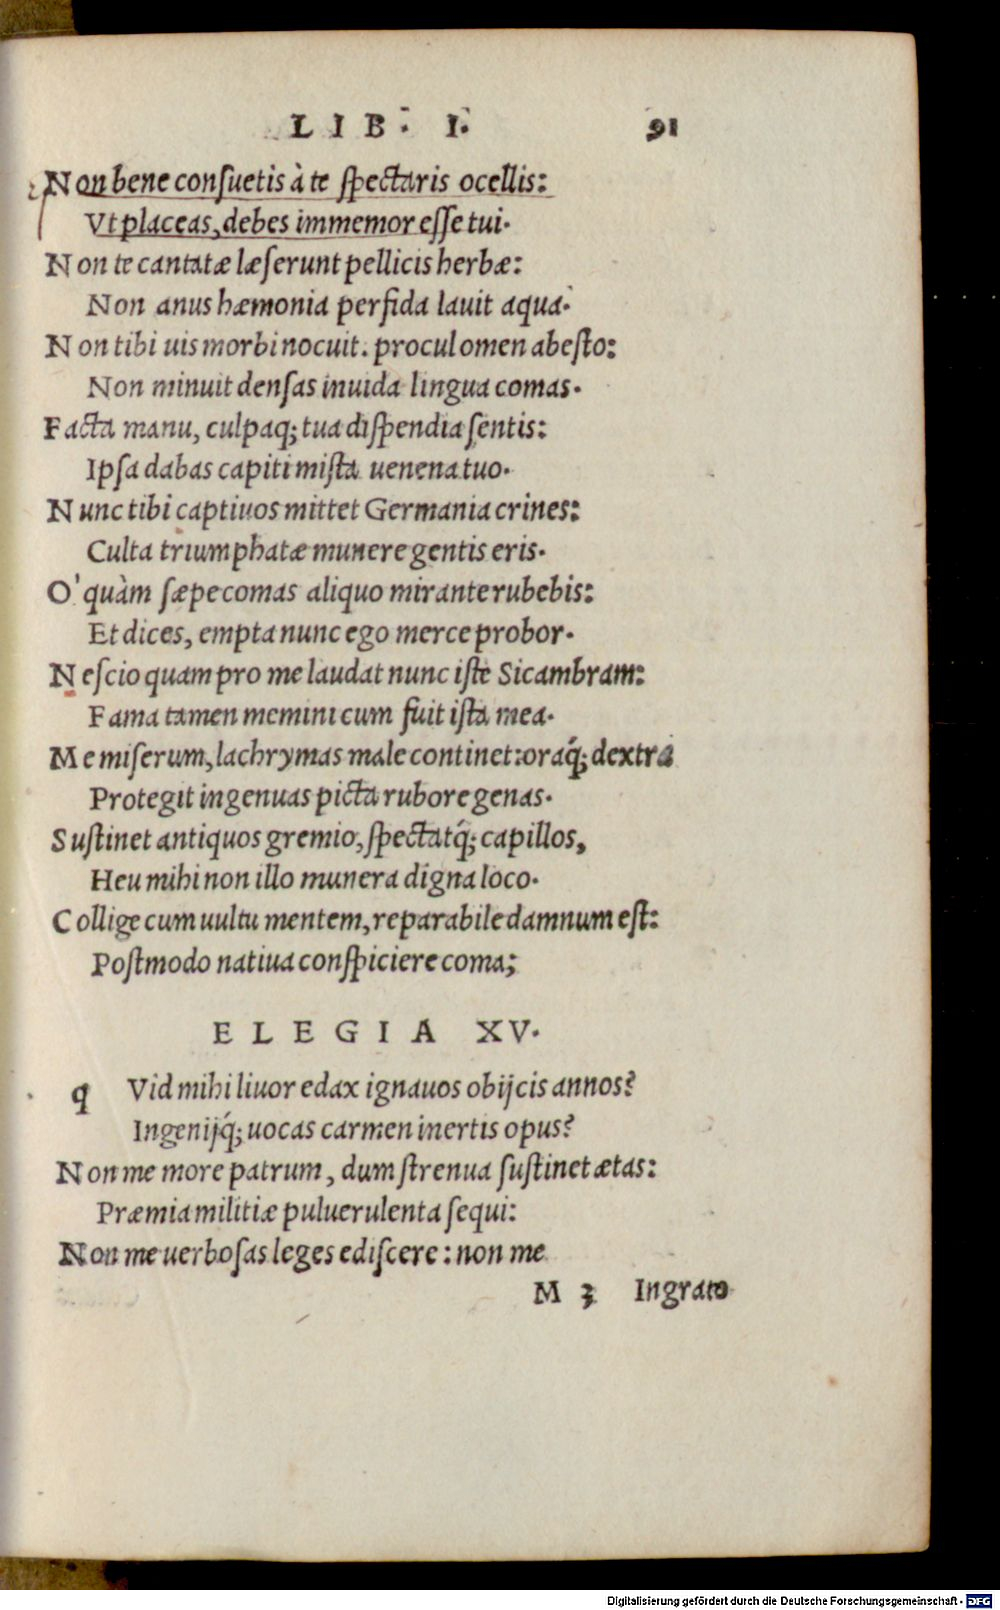 LIB. I. 91
Non bene consuetis à te spectaris ocellis:
Vt placeas, debes immemor esse tui.
Non te cantatæ læserunt pellicis herbæ:
Non anus hæmonia perfida lauit aqua.
Non tibi uis morbi nocuit. procul omen abesto:
Non minuit densas inuida lingua comas.
Facta manu, culpaq; tua dispendia sentis:
Ipsa dabas capiti mista uenena tuo.
Nunc tibi captiuos mittet Germania crines:
Culta triumphatæ munere gentis eris.
O' quàm sæpe comas aliquo mirante rubebis:
Et dices, empta nunc ego merce probor.
Nescio quam pro me laudat nunc iste Sicambram:
Fama tamen memini cum fuit ista mea.
Me miserum, lachrymas male continet: oraq́; dextra
Protegit ingenuas picta rubore genas.
Sustinet antiquos gremio, spectatq́; capillos,
Heu mihi non illo munera digna loco.
Collige cum uultu mentem, reparabile damnum est:
Postmodo natiua conspiciere coma;
ELEGIA XV.
qVid mihi liuor edax ignauos obijcis annos?
Ingenijq́; uocas carmen inertis opus?
Non me more patrum, dum strenua sustinet ætas:
Præmia militiæ puluerulenta sequi:
Non me uerbosas leges ediscere: non me
M 3 Ingrato
Digitalisierung gefördert durch die Deutsche Forschungsgemeinschaft - DFG